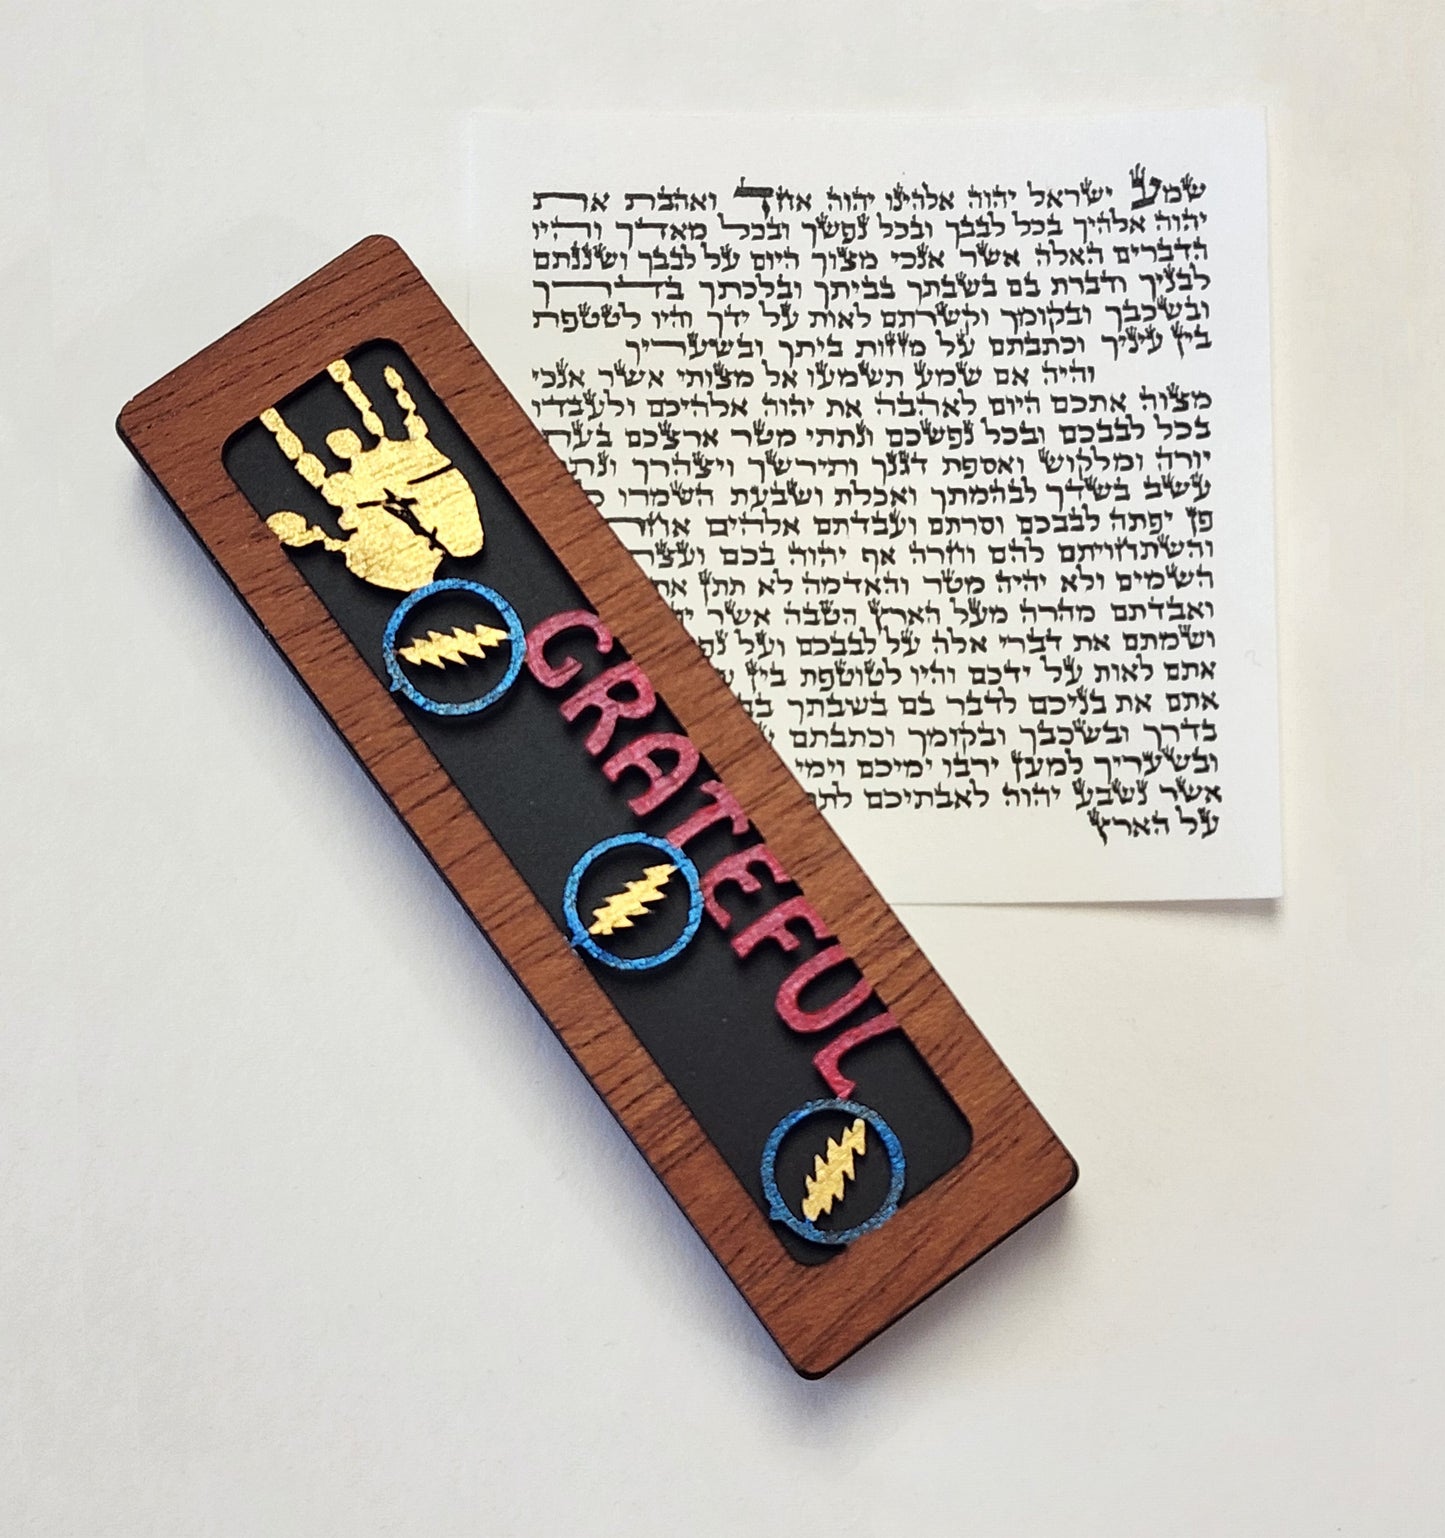 שמע ישראל יהוה אלהינו יהוה אחד ואהבת את
יהוה אלהיך בכל לבבך ובכל נפשך ובכל מאדך והיו
הדברים האלה אשר אנכי מצוך היום על לבבך ושננתם
לבניך ודברת בם בשבתך בביתך ובלכתך בדרך
ובשכבך ובקומך וקשרתם לאות על ידך והיו לטטפת
בין עיניך וכתבתם על מזזות ביתך ובשעריך
והיה אם שמע תשמעו אל מצותי אשר אנכי
מצוה אתכם היום לאהבה את יהוה אלהיכם ולעבדו
בכל לבבכם ובכל נפשכם ונתתי מטר ארצכם
יורה ומלקוש ואספת דגנך ותירשך ויצהרך
עשב בשדך לבהמתך ואכלת ושבעת השמרו
פן יפתה לבבכם וסרתם ועבדתם אלהים
והשתחויתם להם וחרה אף יהוה בכם
השמים ולא יהיה מטר והאדמה לא תתן
ואבדתם מהרה מעל הארץ הטבה אשר
ושמתם את דברי אלה על לבבכם ועל
אתם לאות על ידכם והיו לטוטפת בין
אתם את בניכם לדבר בם בשבתך
בדרך ובשכבך ובקומך וכתבתם
ובשעריך למען ירבו ימיכם וימי
אשר נשבע יהוה לאבתיכם
על הארץ
GRATEFUL